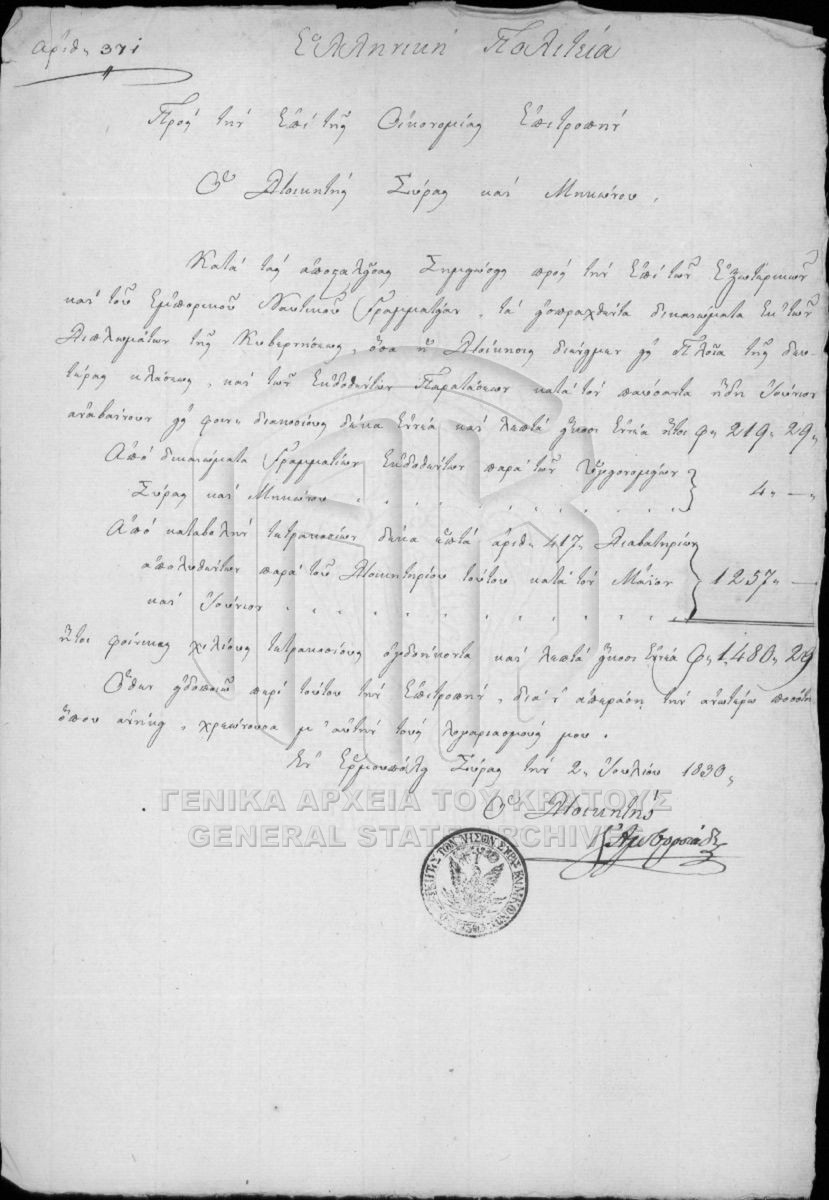 Ἀριθ. 371
Ἑλληνικὴ Πολιτεία
Πρὸς τὴν ἐπὶ τῆς Οἰκονομίας Ἐπιτροπὴν
Ὁ Διοικητὴς Σύρας καὶ Μηκώνου.
Κατὰ τὰς ἀποσταλείσας Σημειώσεις πρὸς τὴν ἐπὶ τῶν Ἐξωτερικῶν
καὶ τοῦ Ἐμπορικοῦ Ναυτικοῦ Γραμματείαν, τὰ εἰσπραχθέντα δικαιώματα ἐκ τῶν
Διπλωμάτων τῆς Κυβερνήσεως, ὅσα ἡ Διοίκησις διένειμεν εἰς Πλοῖα τῆς δευ-
τέρας κλάσεως, καὶ τῶν ἐκδοθέντων Παρατάσεων κατὰ τὸν παύσαντα ἤδη Ἰούνιον
ἀναβαίνουν εἰς φοίν. διακοσίους δέκα ἐννέα καὶ λεπτὰ εἴκοσι ἐννέα ἤτοι φ. 219. 29.
Ἀπὸ δικαιώματα Γραμματίων ἐκδοθέντων παρὰ τῶν Ὑγειονομείων
Σύρας καὶ Μηκώνου 4. —
Ἀπὸ καταβολὴν τετρακοσίων δέκα ἑπτὰ ἀριθ. 417. Διαβατηρίων
ἀπολυθέντων παρὰ τοῦ Διοικητηρίου τούτου κατὰ τὸν Μάϊον 1257. —
καὶ Ἰούνιον
ἤτοι φοίνικας χιλίους τετρακοσίους ὀγδοήκοντα καὶ λεπτὰ εἴκοσι ἐννέα φ. 1,480. 29
Ὅθεν εἰδοποιῶ περὶ τούτου τὴν Ἐπιτροπὴν, διὰ ν' ἀπεράσῃ τὴν ἀνωτέρω ποσότη
ὅπου ἀνήκει, χρεώνουσα μ' αὐτὴν τοὺς λογαριασμούς μου.
Ἐν Ἑρμουπόλει Σύρας τὴν 2. Ἰουλίου 1830.
Ὁ Διοικητὴς
ΓΕΝΙΚΑ ΑΡΧΕΙΑ ΤΟΥ ΚΡΑΤΟΥΣ
GENERAL STATE ARCHIVES